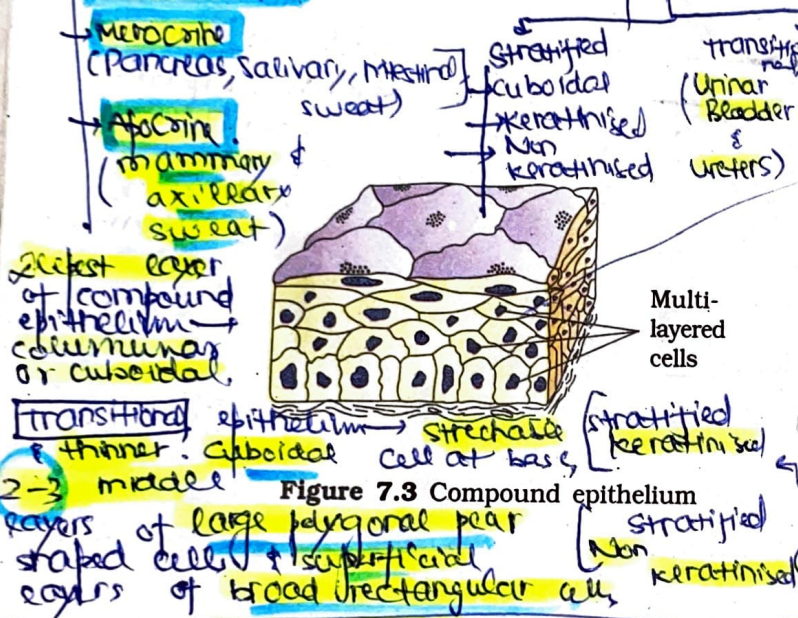 Merocrine
(Pancreas, Salivary, Intestinal
sweat)
Apocrine
(mammary &
axillary
sweat)
Stratified
cuboidal
Keratinised
Non
keratinised
transitio
nal
(Urinar
Bladder
&
Ureters)
Multi-
layered
cells
layer
of compound
epithelium
columunar
or cuboidal
transitional epithelium → strechable
& thinner. Cuboidal cell at base,
2-3 middle
layers of large polygonal pear
shaped cell & superficial
layers of broad rectangular cells
[stratified
keratinised
Figure 7.3 Compound epithelium
[stratified
Non
keratinised